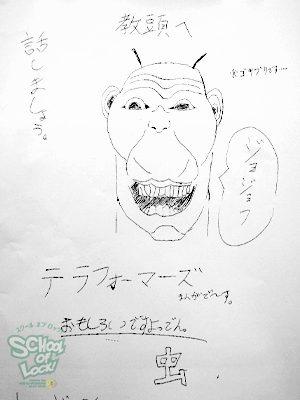 教頭へ
話しましょう。
※ゴキブリです…
ジョジョフ
テラフォーマーズ
まんがで〜す。
おもしろいですよってん。
虫
スクール オブ ロック!
SCHOOL OF LOCK!